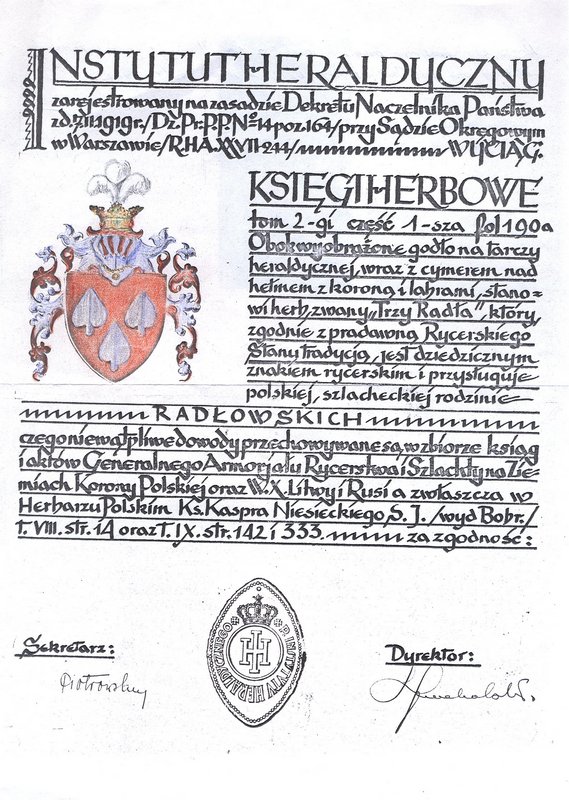 INSTYTUT HERALDYCZNY
zarejestrowany na zasadzie Dekretu Naczelnika Państwa
z d. 7/II.1919r./Dz. Pr. P.P. № 14 poz. 164/przy Sądzie Okręgowym
w Warszawie/R.H.A.XXVII-244/ WYCIĄG.
KSIĘGI HERBOWE
tom 2-gi część 1-sza fol 190a
Obok wyobrażone godło na tarczy
heraldycznej, wraz z cymerem nad
hełmem z koroną i labrami, stano=
wi herb, zwany „Trzy Radła", który,
zgodnie z pradawną Rycerskiego
Stanu tradycją, jest dziedzicznym
znakiem rycerskim i przysługuje
polskiej, szlacheckiej rodzinie
RADŁOWSKICH
czego niewątpliwe dowody przechowywane są, w zbiorze ksiąg
i aktów Generalnego Armorjału Rycerstwa i Szlachty na Zie-
miach Korony Polskiej oraz W.X. Litwy i Rusi a zwłaszcza w
Herbarzu Polskim Ks. Kaspra Niesieckiego S. J. /wyd Bobr./
t. VIII. str. 14 oraz t. IX. str. 142 i 333. za zgodność:
P. INSTYTUT HERALDYCZNEGO
IH
Sekretarz:
Piotrowski
Dyrektor: